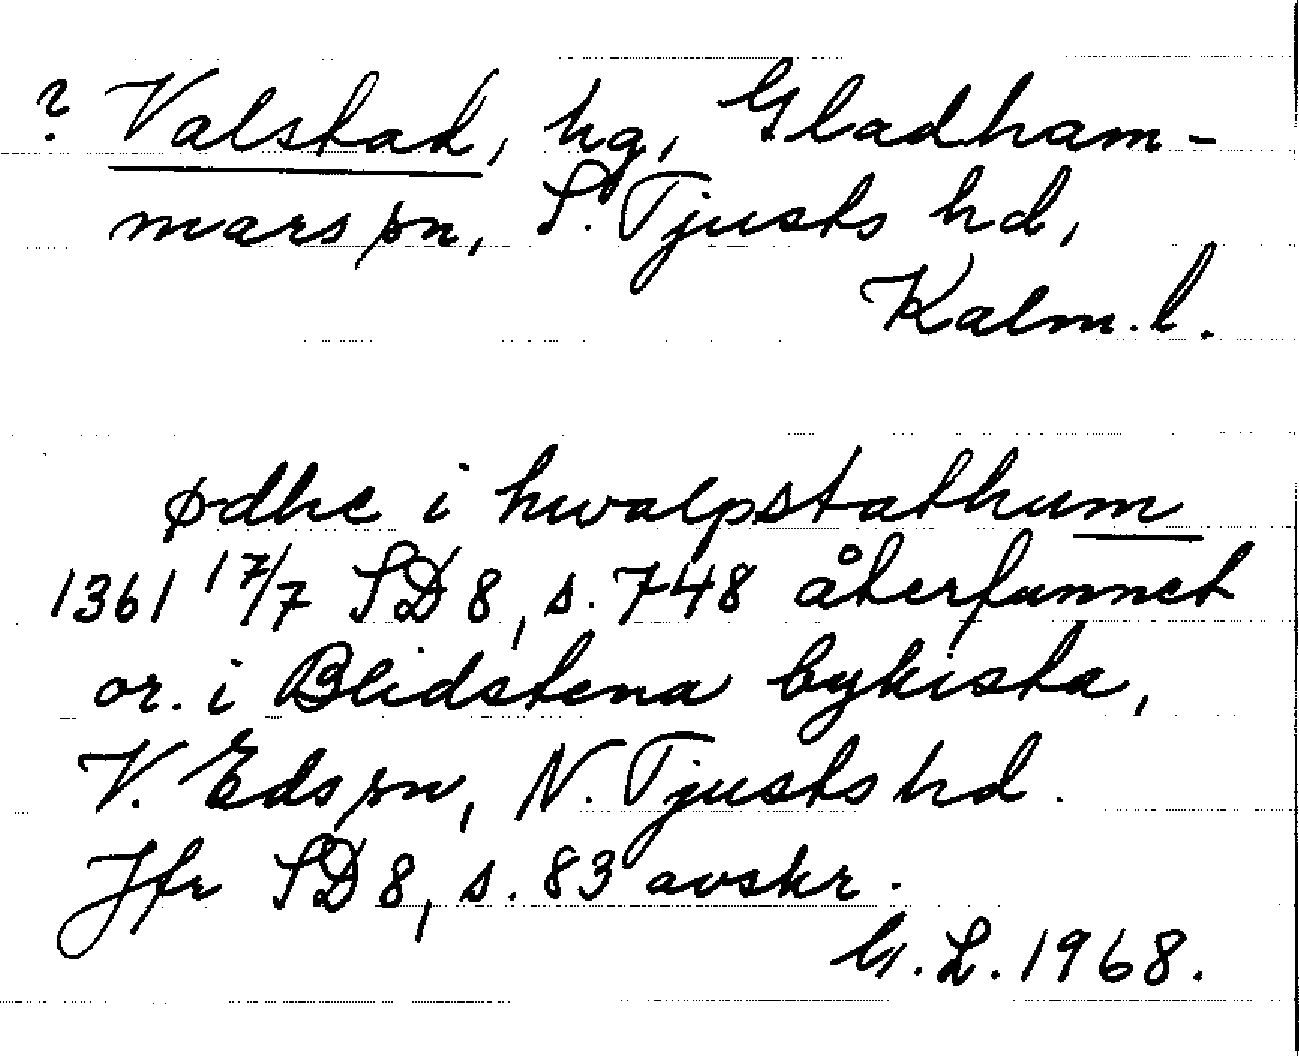 ? Valstad, hg, Gladham-
mars sn, S. Tjusts hd,
Kalm. l.
ødhe i hwalpstathum
1361 17/7 SD 8, s. 748 återfunnet
or. i Blidstena bykista,
V. Eds sn, N. Tjusts hd.
Jfr SD 8, s. 83 avskr.
G. L. 1968.